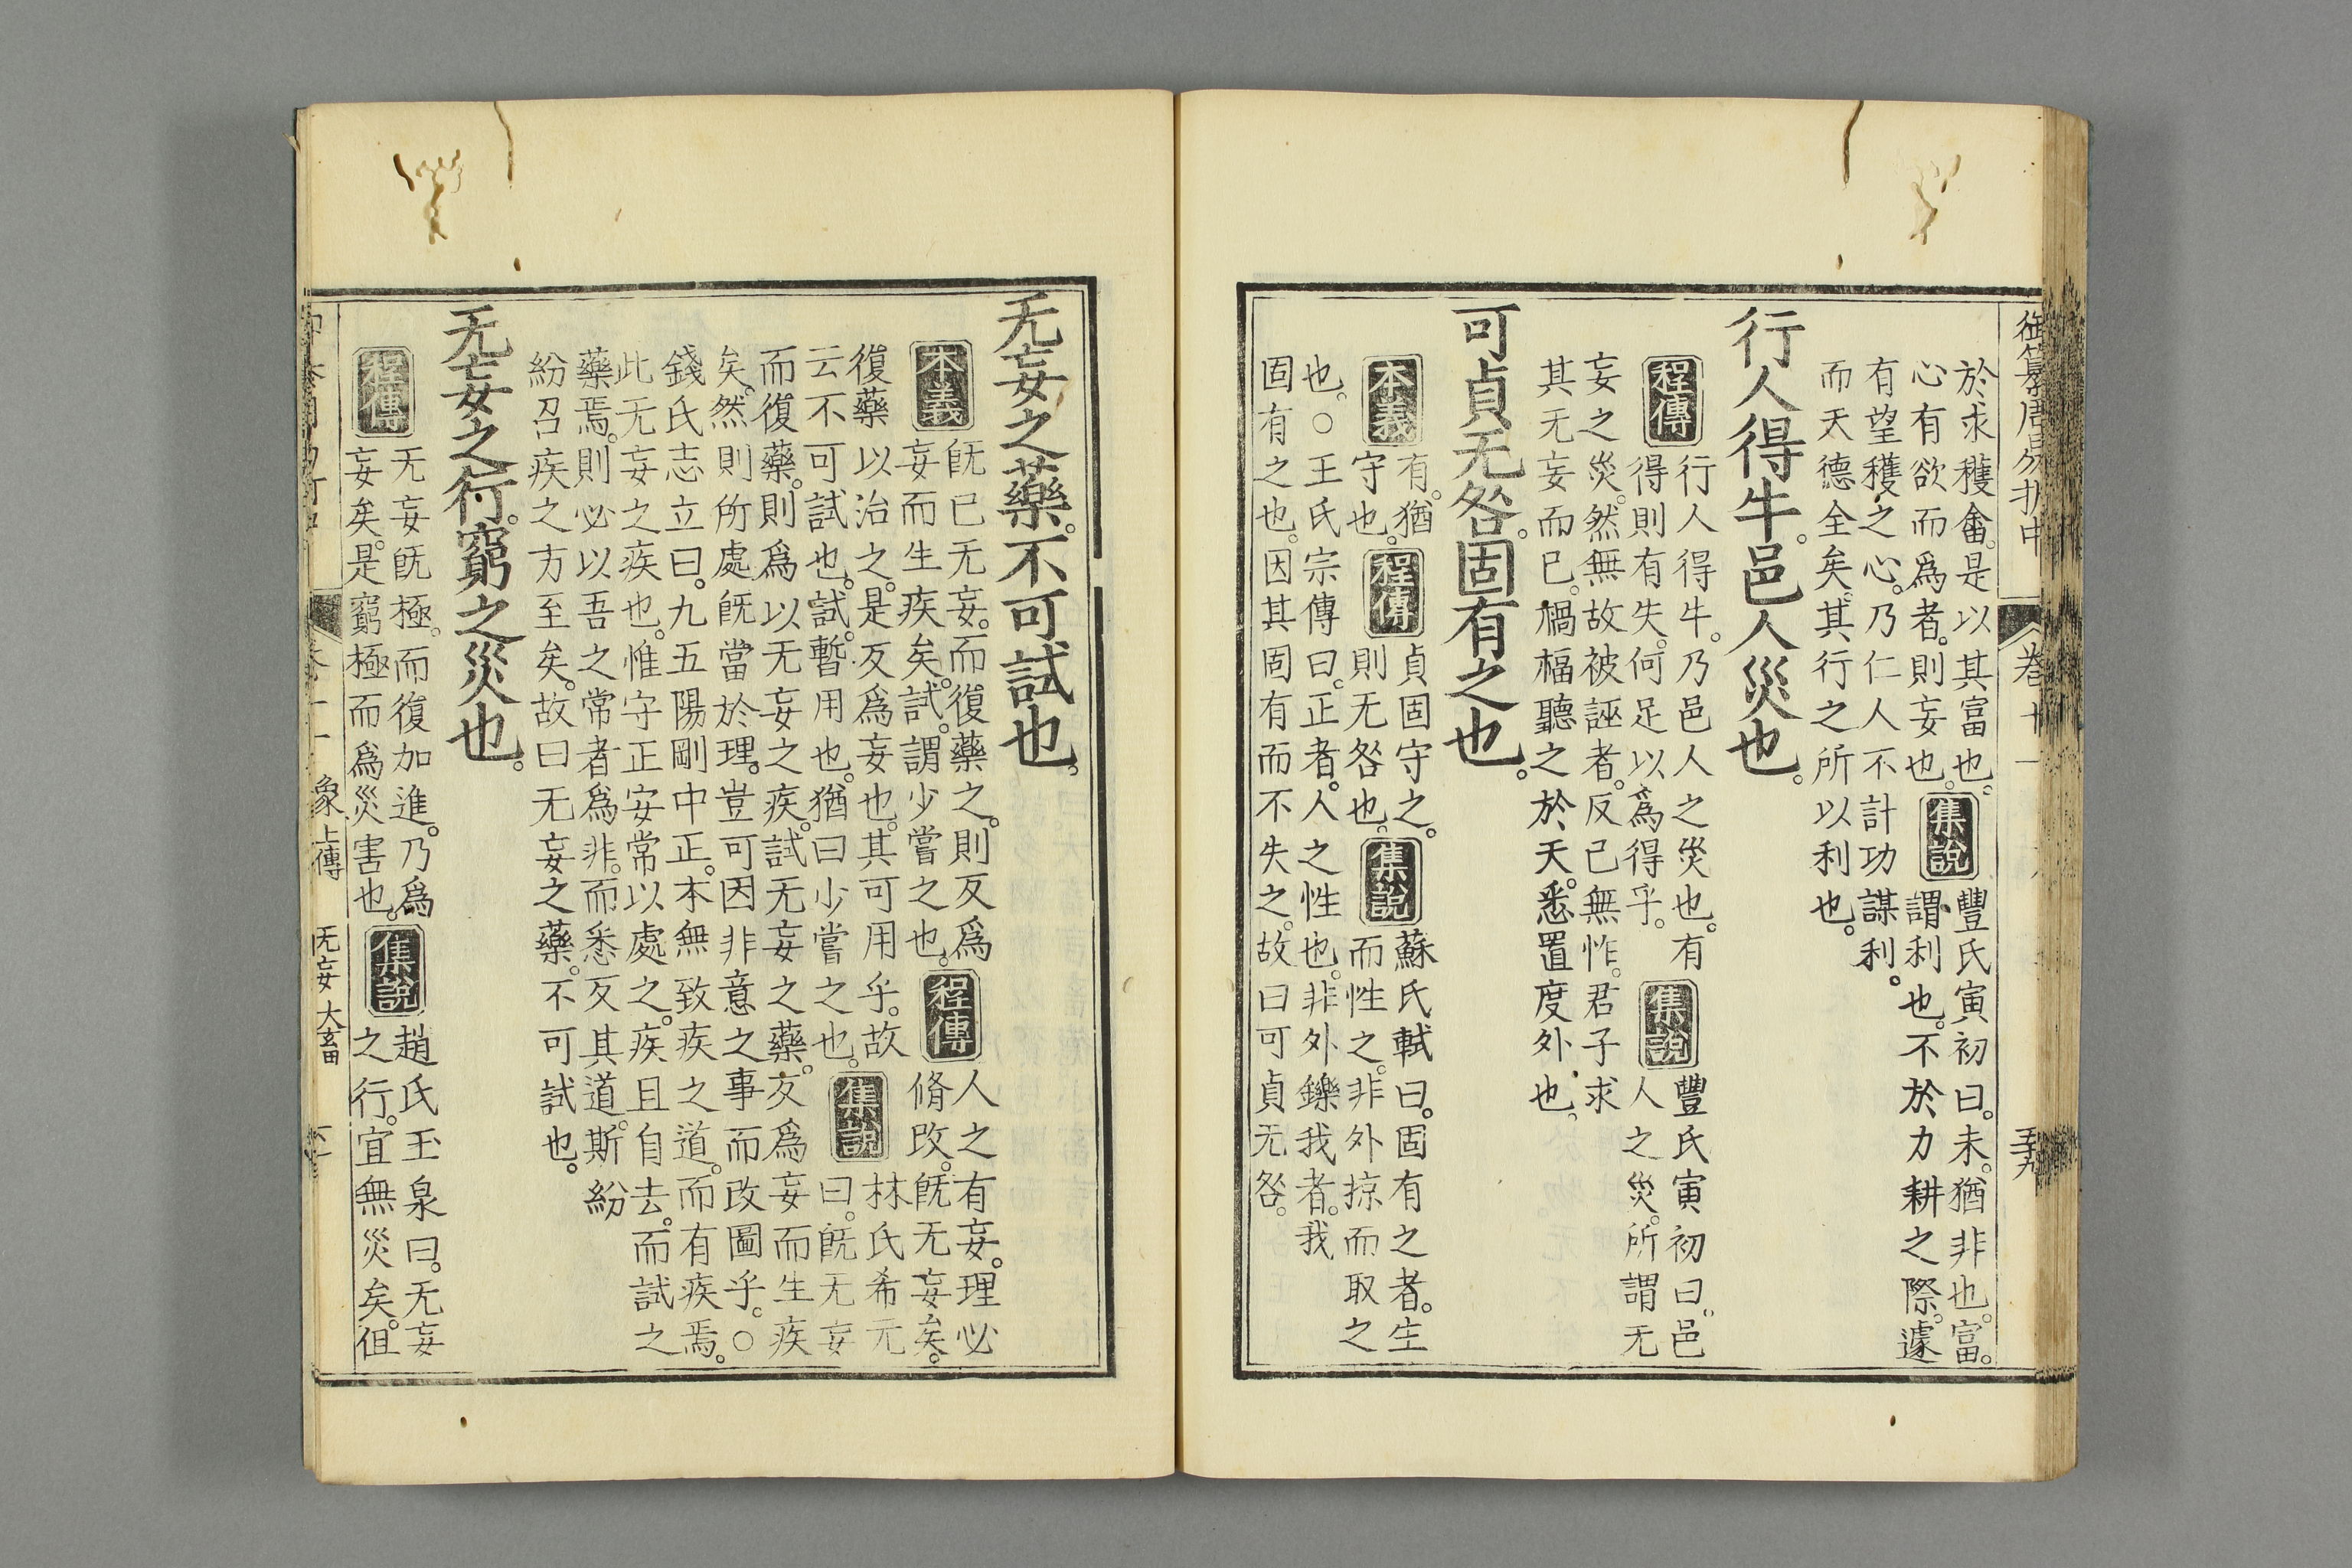 御纂周易折中
卷十一
五十九
於求穫畬。是以其富也。集說豐氏寅初曰。未。猶非也。富。
心有欲而爲者。則妄也。謂利也。不於力耕之際。遽
有望穫之心。乃仁人不計功謀利。
而天德全矣。其行之所以利也。
行人得牛。邑人災也。
程傳行人得牛。乃邑人之災也。有
得則有失。何足以爲得乎。
集說豐氏寅初曰。邑
人之災。所謂无
妄之災。然無故被誣者。反己無怍。君子求
其无妄而已。禍福聽之於天。悉置度外也。
可貞无咎。固有之也。
本義有。猶
守也。
程傳貞固守之。
則无咎也。
集說蘇氏軾曰。固有之者。生
而性之。非外掠而取之
也。○王氏宗傳曰。正者。人之性也。非外鑠我者。我
固有之也。因其固有而不失之。故曰可貞无咎。
无妄之藥。不可試也。
本義旣已无妄。而復藥之。則反爲
妄而生疾矣。試。謂少嘗之也。
程傳人之有妄。理必
脩改。旣无妄矣。
復藥以治之。是反爲妄也。其可用乎。故
云不可試也。試。暫用也。猶曰少嘗之也。
集說林氏希元
曰。旣无妄
而復藥。則爲以无妄之疾。試无妄之藥。反爲妄而生疾
矣。然則所處旣當於理。豈可因非意之事而改圖乎。○
錢氏志立曰。九五陽剛中正。本無致疾之道。而有疾焉。
此无妄之疾也。惟守正安常以處之。疾且自去。而試之
藥焉。則必以吾之常者爲非。而悉反其道。斯紛
紛召疾之方至矣。故曰无妄之藥。不可試也。
无妄之行。窮之災也。
程傳无妄旣極。而復加進。乃爲
妄矣。是窮極而爲災害也。
集說趙氏玉泉曰。无妄
之行。宜無災矣。但
象上傳 无妄 大畜